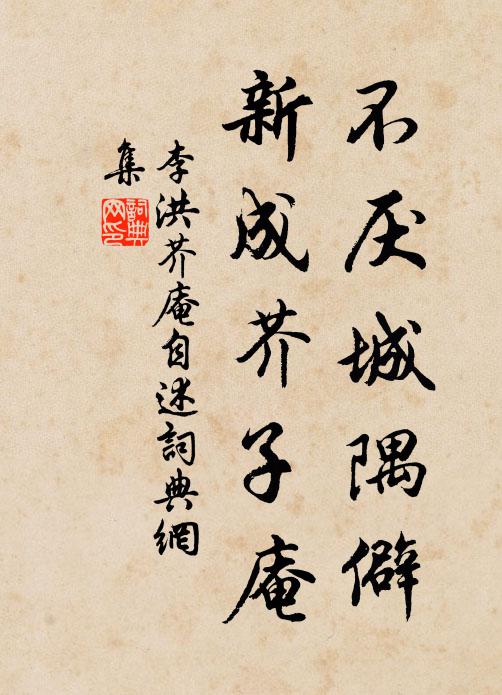 不厌城隅僻
新成芥子庵
李洪芥庵自述詞典網
集
詞典網印